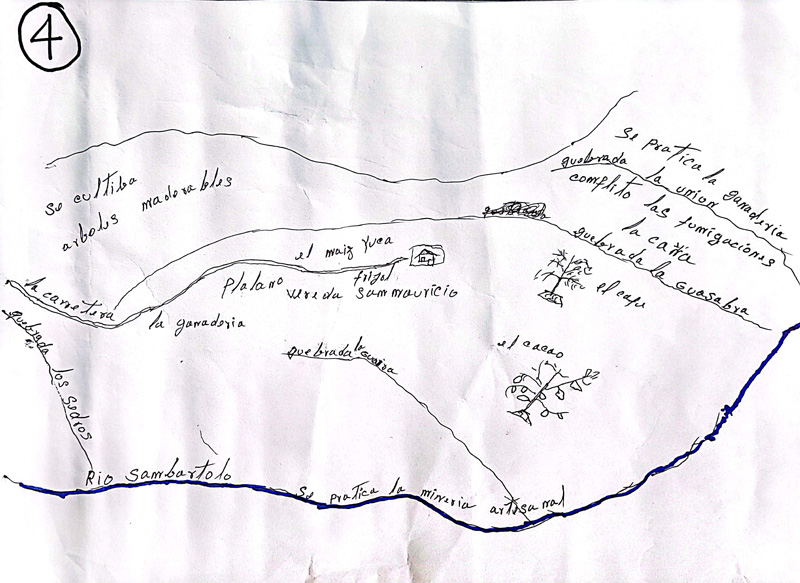 4
se pratica la ganaderia
quebrada la union
complito las fumigaciones
la caña
quebrada la Guasabra
se cultiba
arboles maderables
el maiz yuca
platano frijol
vereda sanmauricio
la carretera
la ganaderia
el cafe
quebrada los sedros
quebrada la
el cacao
Rio Sambartolo
se pratica la mineria artesanal